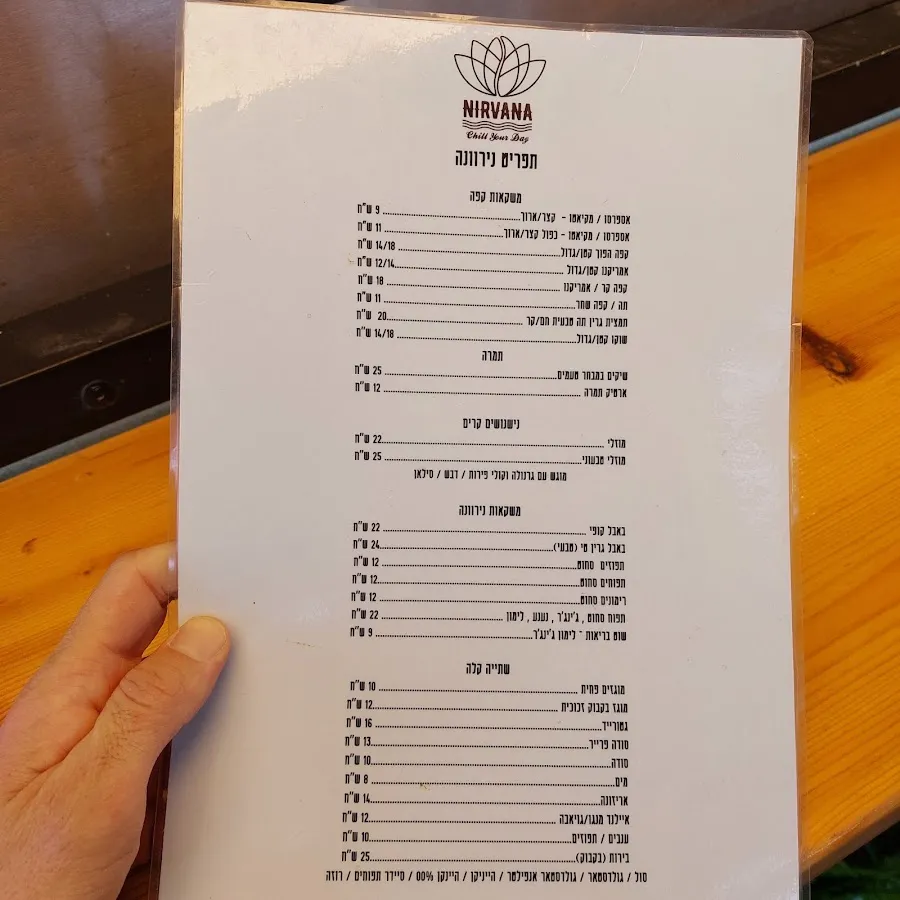 NIRVANA
Chill Your Day
תפריט נירוונה
משקאות קפה
אספרסו / מקיאטו - קצר/ארוך 9 ש"ח
אספרסו / מקיאטו - כפול קצר/ארוך 11 ש"ח
קפה הפוך קטן/גדול 14/18 ש"ח
אמריקנו קטן/גדול 12/14 ש"ח
קפה קר / אמריקנו 18 ש"ח
תה / קפה שחר 11 ש"ח
תמצית גרין תה טבעית חם/קר 20 ש"ח
שוקו קטן/גדול 14/18 ש"ח
תמרה
שיקים במבחר טעמים 25 ש"ח
ארטיק תמרה 12 ש"ח
נישנושים קרים
מוזלי 22 ש"ח
מוזלי טבעוני 25 ש"ח
מוגש עם גרנולה וקולי פירות / דבש / סילאן
משקאות נירוונה
באבל קופי 22 ש"ח
באבל גרין טי (טבעי) 24 ש"ח
תפוזים סחוט 12 ש"ח
תפוחים סחוט 12 ש"ח
רימונים סחוט 12 ש"ח
תפוח סחוט , ג'ינג'ר , נענע , לימון 22 ש"ח
שוט בריאות - לימון ג'ינג'ר 9 ש"ח
שתייה קלה
מוגזים פחית 10 ש"ח
מוגז בקבוק זכוכית 12 ש"ח
גטורייד 16 ש"ח
סודה פרייר 13 ש"ח
סודה 10 ש"ח
מים 8 ש"ח
אריזונה 14 ש"ח
איילנד מנגו/גויאבה 12 ש"ח
ענבים / תפוזים 10 ש"ח
בירות (בקבוק) 25 ש"ח
סול / גולדסטאר / גולדסטאר אנפילטר / הייניקן / היינקן 00% / סיידר תפוחים / רוזה